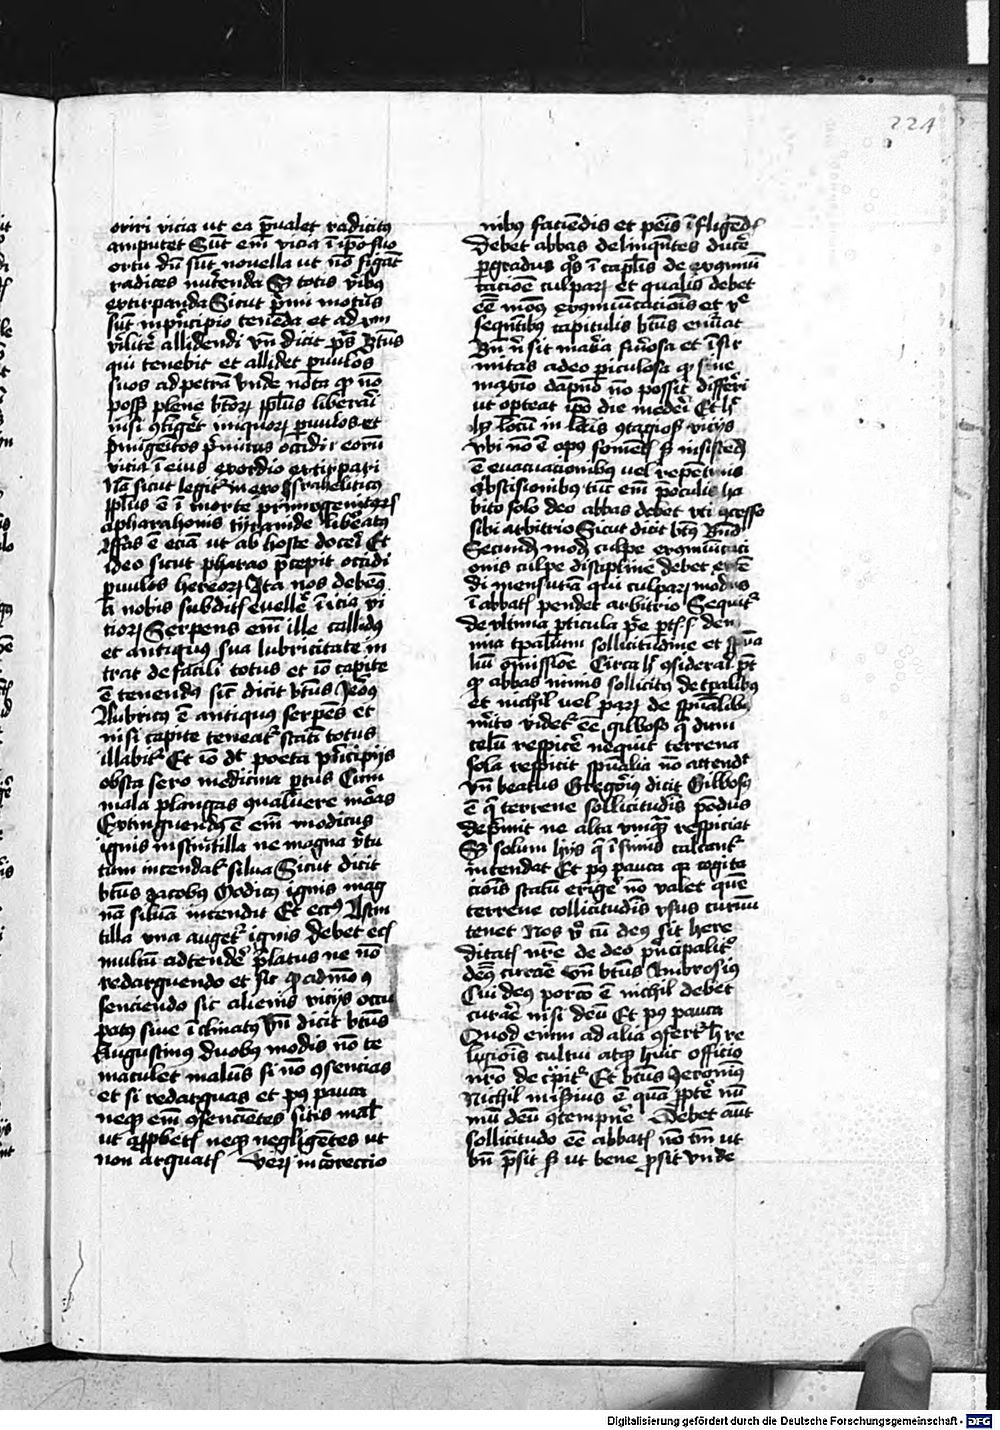 224
oriri vicia ut ea p̄ualet radicitꝰ
amputet Sūt em̄ vicia ī ip̄o suo
ortu dū sūt nouella ut nō figāt
radices nut̄enda Sꝫ totis v̄ibꝰ
extirpanda Sicut p̄mi motus
sūt in pn̄cipio tenēda et ad
v̄ilit̄ allidendi vn̄ dicit p̄s Btūs
qui tenebit et allidet puulos
suos ad petrā vnde nota qꝫ nō
poss̄ plene vetoꝝ pplūs liberari
nisi ꝯtiḡet iniquoꝝ puulos et
p̄migenitos p̄mitus occidi eorū
vicia ī eius exordio extirpari
Nā sicut legit᷑ in exo Israheliticus
pplūs ē ī morte primogenitoꝝ
a pharahonis tyranide libeatus
Iussus ē eciā ut ab hoste docei Et
ideo sicut pharao p̄cepit occidi
puulos hebreoꝝ Ita nos debemꝰ
a nobis subditis euell̄e īicia vi
tioꝝ Serpens em̄ ille callidꝰ
et antiquꝰ sua lubricitate in
trat de facili totus et iō capite
ē tenendꝰ sic̄ dicit btūs Jeoꝰ
Lubricꝰ ē antiquꝰ serpēs et
nisi capite teneat᷑ statī totus
illabit᷑ Et iō dt poeta p̄ncipijs
obsta sero medicina p̄tus Cum
mala plangas qualuere mōas
Extinguendꝰ ē em̄ modicus
ignis in scintilla ne magna v̄tu
tum incendat᷑ silua Sicut dicit
btūs Jacobꝰ Modicꝰ ignis mag
nā siluā incendit Et ecc̄ A scin
tilla vna auget᷑ ignis Debet ecꝫ
multū adtendē p̄latus ne nō
redarguendo et sic qͣ admō ꝯ
senciendo sic alienis vicijs occu
patꝰ siue ī clinatꝰ Vn̄ dicit btūs
Augustinꝰ duobꝰ modis nō te
maculet malus si nō ꝯsencias
et si redarguas et pꝰ pauca
neqꝫ em̄ ꝯsenciētes sitis malis
ut app̄betis neqꝫ negligētes ut
non arguatis Veꝝ in correccio
nibꝰ faciēdis et penis īfligēdis
Debet abbas delinqn̄tes ducē
p gradus qͦs ī caplis de exꝯmūi
cacioē culpaꝝ et qualis debet
eē modꝰ exꝯmūicacionis et ve
seqn̄tibꝰ capitulis btūs enūat
Bn̄ n̄ sit mat̄ia furiosa et īfir
mitas adeo piculosa qꝫ sine
maxīo dāpno nō possit differri
ut opteat ip̄o die mederi Et hͦ
hꝫ locū in locis ꝯtagiosis vicijs
vbi nō ē opꝰ fomētis sꝫ insistēdū
ē euacuacionibꝰ uel repetinis
abscisionibꝰ tūc em̄ p̄ oculis ha
bito solo deo abbas debet vti ꝯcesso
sibi arbitrio Sicut dicit btꝰ Bn̄d
Secundū modū culpe exꝯmūicaci
onis culpe discipline debet extē
di mensurā qui culpaꝝ modus
ī abbatis pendet arbitrio Sequit᷑
de vltima pticula p̄me ptis s de ni
mia tpaliūm sollicitudine et spūa
liū omissioē Circa hͦ ꝯsiderari pt
qꝫ abbas nimis sollicitꝰ de tpalibꝰ
et nichil vel paꝝ de spūalibꝰ
mito videt᷑ eē gilboso qͥ dum
celū respicē nequit terrena
sola respicit spūalia nō attendit
Vn̄ beatus Gregorius dicit Gilbosꝰ
ē qͥ terrene sollicitudis pōdus
dep̄mit ne alta vnquā respiciat
Sꝫ solum hijs qͥ ī fimis calcant᷑
intendat Et pꝰ pauca qꝫ cogita
cionis statū erige nō valet quē
terrene sollicitudis vsus curuū
tenet Nos v̄o cū deꝰ sit here
ditatis nr̄e de deo p̄ncipalit᷑
debemꝰ curāe Vn̄ btūs Ambrosiꝰ
Cui deꝰ porcō ē nichil debet
curāe nisi deū Et pꝰ pauca
Quod enim ad alia ꝯfert᷑ hͦ re
ligionis cultui atqꝫ huic officio
nr̄o decerpit᷑ Et btūs Jeronimꝰ
Nichil mis̄ius ē quā ppt̄ nū
mū deū ꝯtempnē Debet aūt
sollicitudo eē abbatis nō tm̄ ut
bn̄ p̄sit sꝫ ut bene p̄sit vnde
Digitalisierung gefördert durch die Deutsche Forschungsgemeinschaft - DFG